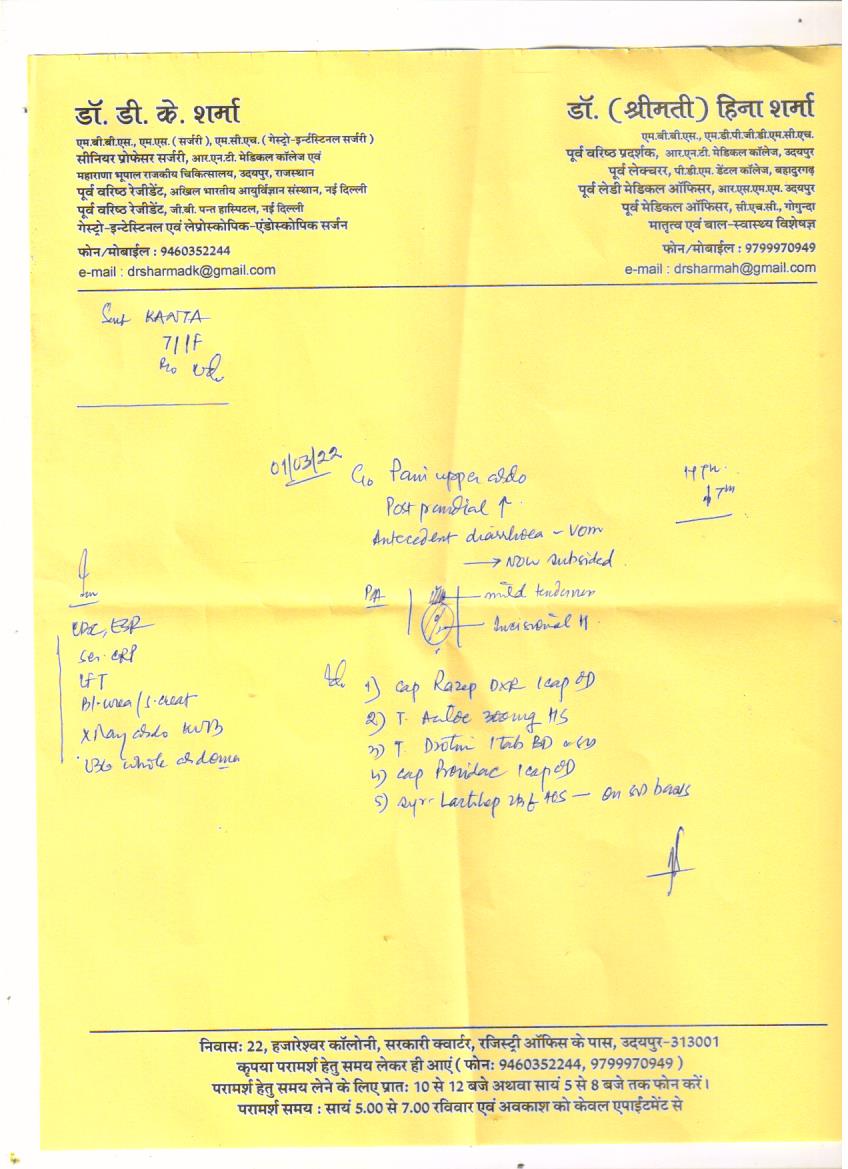 डॉ. डी. के. शर्मा
एम.बी.बी.एस., एम.एस. ( सर्जरी ), एम.सी.एच. ( गेस्ट्रो-इन्टेंस्टिनल सर्जरी )
सीनियर प्रोफेसर सर्जरी, आर.एन.टी. मेडिकल कॉलेज एवं
महाराणा भूपाल राजकीय चिकित्सालय, उदयपुर, राजस्थान
पूर्व वरिष्ठ रेजीडेंट, अखिल भारतीय आयुर्विज्ञान संस्थान, नई दिल्ली
पूर्व वरिष्ठ रेजीडेंट, जी.बी. पन्त हास्पिटल, नई दिल्ली
गेस्ट्रो-इन्टेस्टिनल एवं लेप्रोस्कोपिक-एंडोस्कोपिक सर्जन
फोन/मोबाईल : 9460352244
e-mail : drsharmadk@gmail.com
डॉ. (श्रीमती) हिना शर्मा
एम.बी.बी.एस., एम.डी.पी.जी.डी.एम.सी.एच.
पूर्व वरिष्ठ प्रदर्शक, आर.एन.टी. मेडिकल कॉलेज, उदयपुर
पूर्व लेक्चरर, पी.डी.एम. डेंटल कॉलेज, बहादुरगढ़
पूर्व लेडी मेडिकल ऑफिसर, आर.एस.एम.एम. उदयपुर
पूर्व मेडिकल ऑफिसर, सी.एच.सी., गोगुन्दा
मातृत्व एवं बाल-स्वास्थ्य विशेषज्ञ
फोन/मोबाईल : 9799970949
e-mail : drsharmah@gmail.com
Smt KANTA
71/F
R/o
01/03/22
C/o Pain upper abdo
Post prandial ↑
Antecedent diarrhoea - Vom
→ Now subsided
HTN
P/A
mild tenderness
Incisional H
CBC, ESR
Ser. CRP
LFT
Bl. urea / S. creat
X Ray abdo KUB
USG whole abdomen
1) cap Razep DXR 1 cap OD
2) T. 300mg HS
3) T. Drotin 1 tab BD
4) cap Providac 1 cap OD
5) syr. HS — on
निवास: 22, हजारेश्वर कॉलोनी, सरकारी क्वार्टर, रजिस्ट्री ऑफिस के पास, उदयपुर-313001
कृपया परामर्श हेतु समय लेकर ही आएं ( फोन: 9460352244, 9799970949 )
परामर्श हेतु समय लेने के लिए प्रात: 10 से 12 बजे अथवा सायं 5 से 8 बजे तक फोन करें।
परामर्श समय : सायं 5.00 से 7.00 रविवार एवं अवकाश को केवल एपाईंटमेंट से